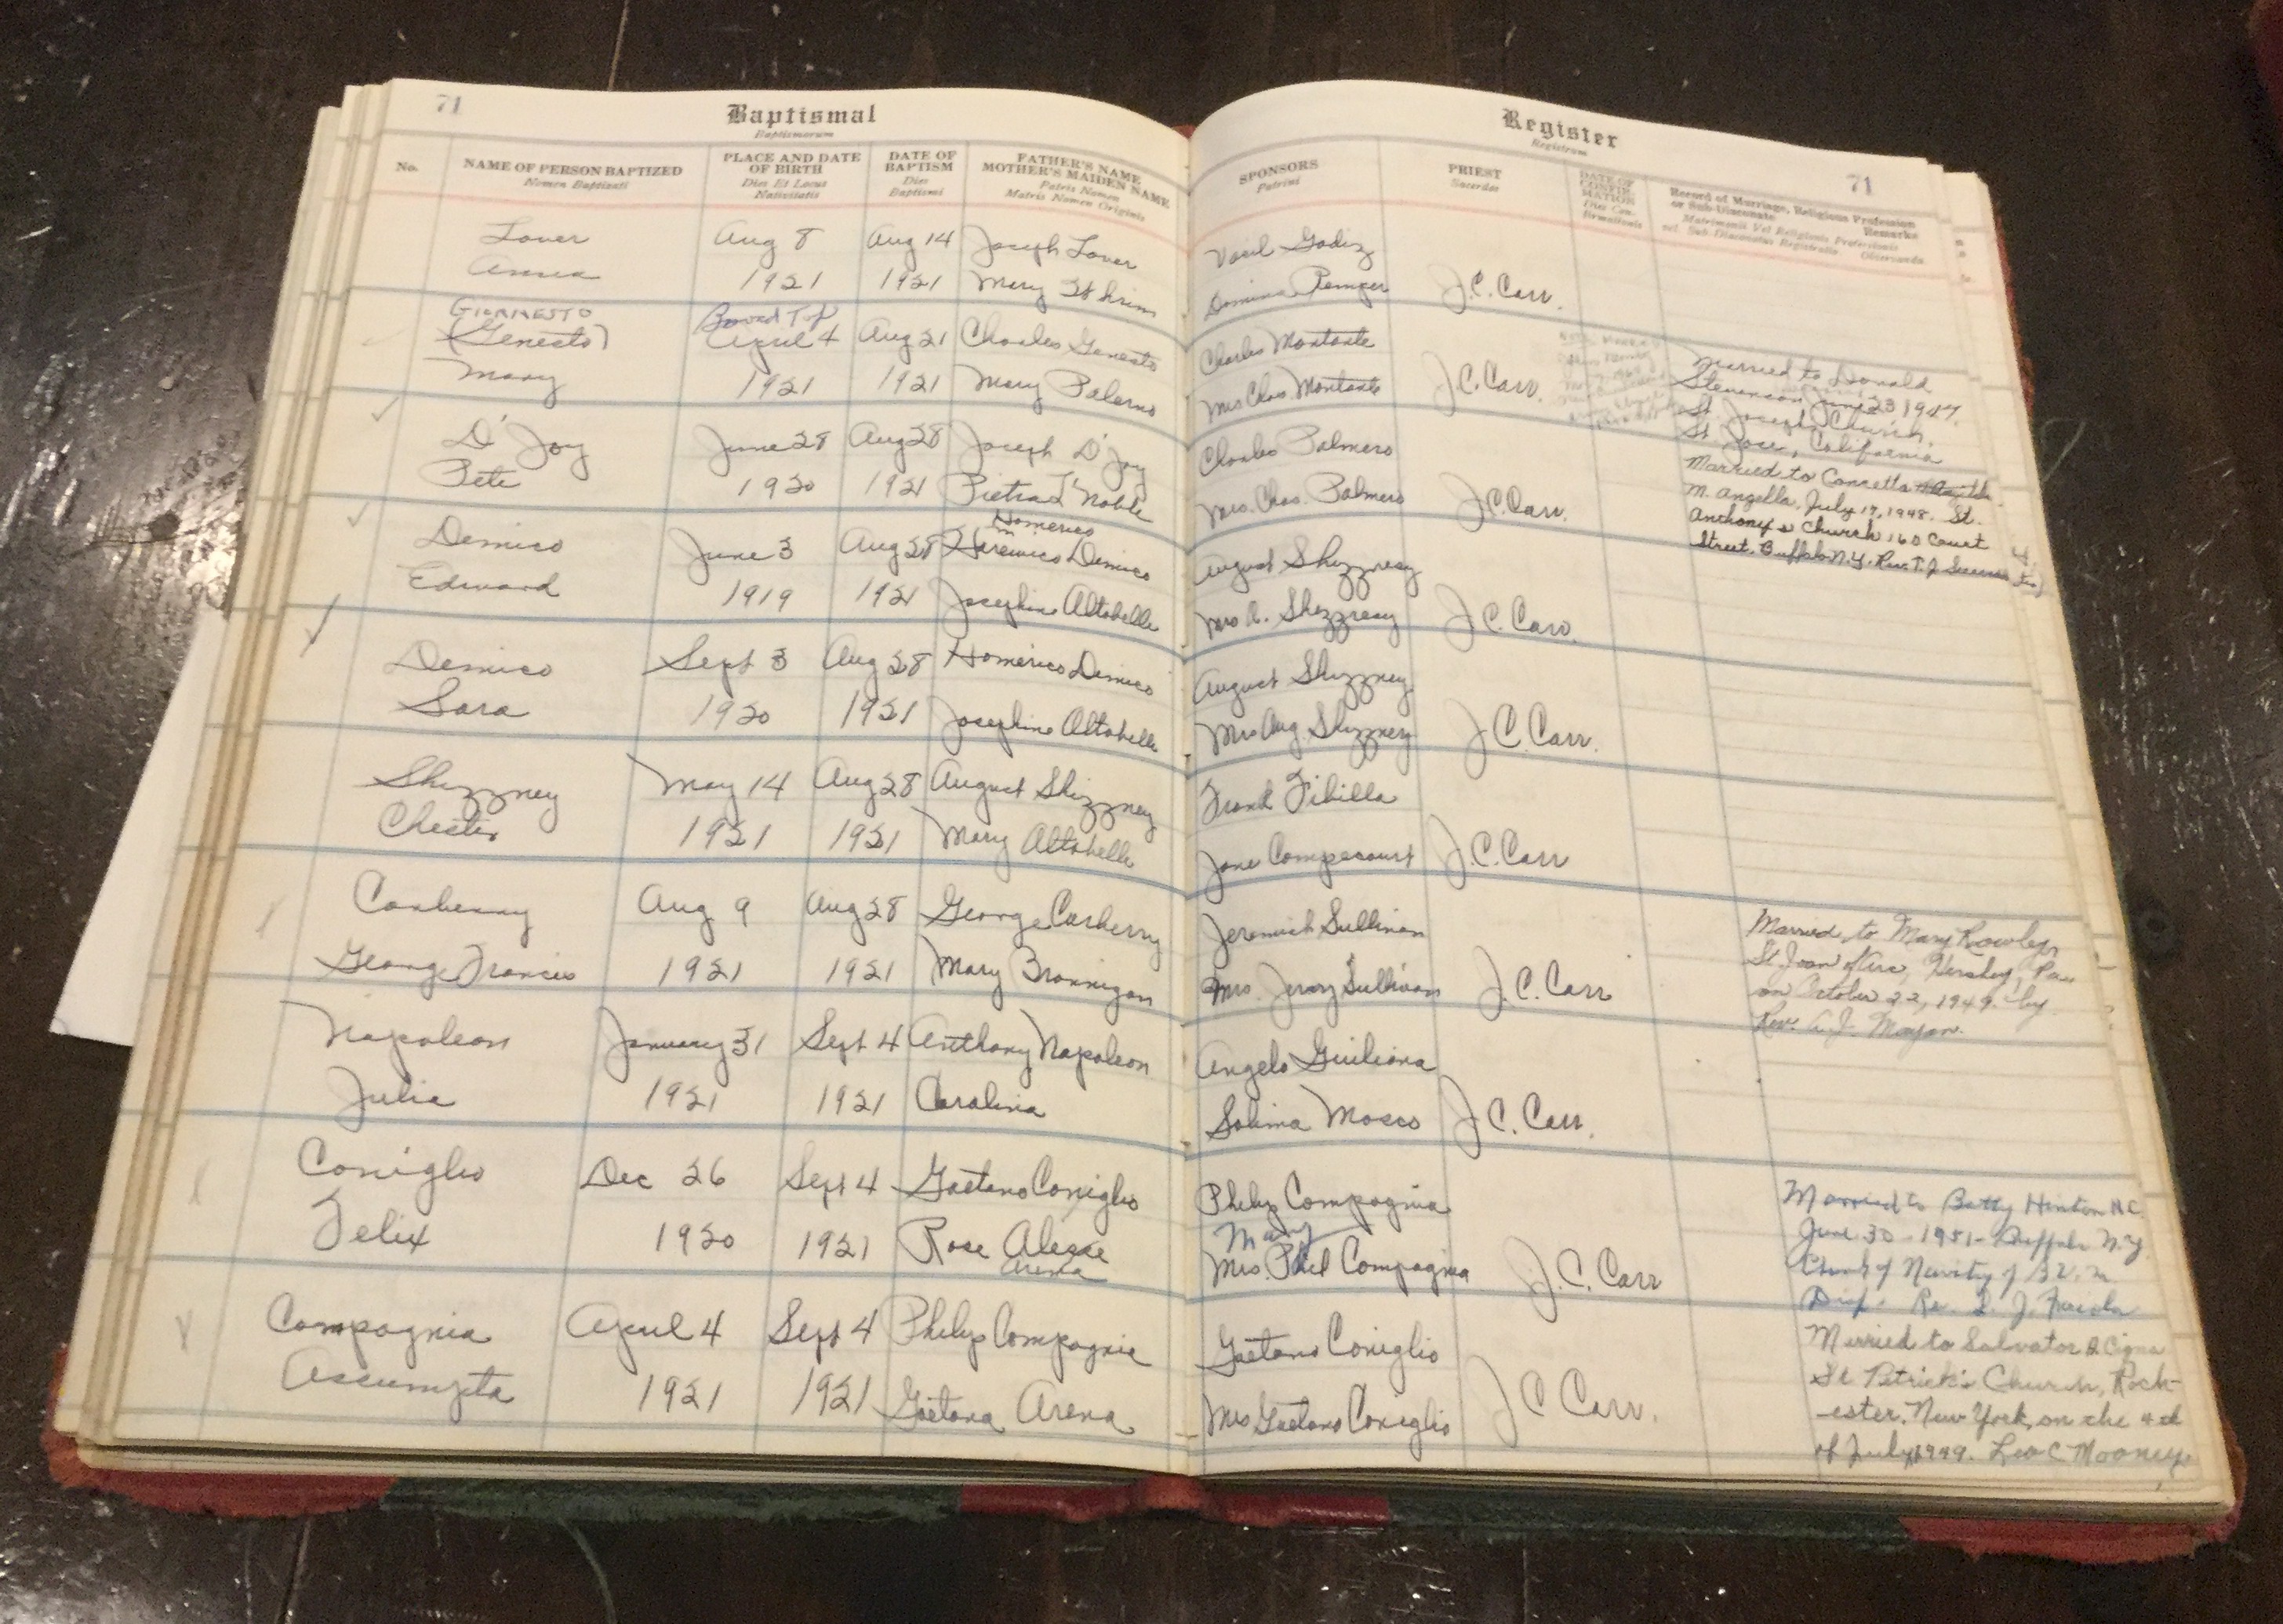 71
Baptismal
Baptismorum
No.
NAME OF PERSON BAPTIZED
Nomen Baptizati
PLACE AND DATE
OF BIRTH
Dies Et Locus
Nativitatis
DATE OF
BAPTISM
Dies
Baptismi
FATHER'S NAME
MOTHER'S MAIDEN NAME
Patris Nomen
Matris Nomen Originis
Register
Registrum
71
SPONSORS
Patrini
PRIEST
Sacerdos
DATE OF
CONFIR-
MATION
Dies Con-
firmationis
Record of Marriage, Religious Profession
or Sub-Diaconate
Remarks
Matrimonii Vel Religionis Professionis
vel Sub Diaconatus Registratio Observanda
Lover Aug 8 Aug 14 Joseph Lover
Anna 1921 1921 Mary
J.C. Carr.
GIORNESTO
(Genesto) April 4 Aug 21 Charles Genesto Charles Montante
Mary 1921 1921 Mary Palermo Mrs Chas Montante J.C. Carr.
Married to Donald
Stevenson June 23 1947
St. Joseph Church.
St Jose, California
D'Joy June 28 Aug 28 Joseph D'Joy Charles Palmero
Pete 1920 1921 Pietra Noble Mrs. Chas. Palmero J.C. Carr.
Married to Concetta
M. Angella, July 17, 1948. St.
Anthony's Church 160 Court
Street, Buffalo N.Y. Rev. T. J.
Homerico
Demico June 3 Aug 28 Demico August Shizzney
Edward 1919 1921 Josephine Altobelle Mrs A. Shizzney J.C. Carr.
Demico Sept 3 Aug 28 Homerico Demico August Shizzney
Sara 1920 1921 Josephine Altobelle Mrs Aug. Shizzney J.C. Carr.
Shizzney May 14 Aug 28 August Shizzney Frank Fibilla
Chester 1921 1921 Mary Altobelle Jane Compecourt J.C. Carr
Carberry Aug 9 Aug 28 George Carberry Jeremiah Sullivan
George Francis 1921 1921 Mary Brannigan Mrs. Jerry Sullivan J.C. Carr
Married to Mary Rowley
St Joan of Arc, Hershey, Pa
on October 22, 1949. by
Rev. A. J.
Napoleon January 31 Sept 4 Anthony Napoleon Angelo Giuliana
Julia 1921 1921 Carolina Sabina Mosco J C. Carr.
Coniglio Dec 26 Sept 4 Gaetano Coniglio Philip Compagnia
Mary
Felix 1920 1921 Rose Alesse Mrs. Phil Compagnia J.C. Carr
Arena
Married to Betty Hinton N.C.
June 30 - 1951 - Buffalo N.Y.
Church of Nativity of B.V.M.
Disp. Re. S. J.
Compagnia April 4 Sept 4 Philip Compagnia Gaetano Coniglio
Assumpta 1921 1921 Gaetana Arena Mrs Gaetano Coniglio J C Carr.
Married to Salvator A Cigna
St Patrick's Church, Roch-
-ester, New York, on the 4th
of July 1949. Leo C Mooney